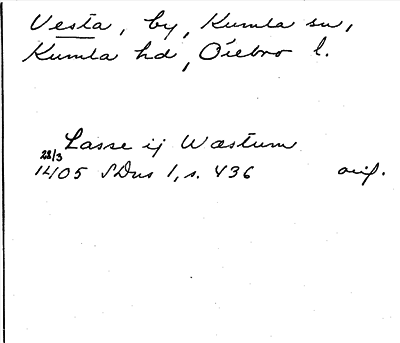 Vesta, by, Kumla sn,
Kumla hd, Örebro l.
Lasse ij Wæstum
22/3
1405 SDns 1, s. 436 orig.